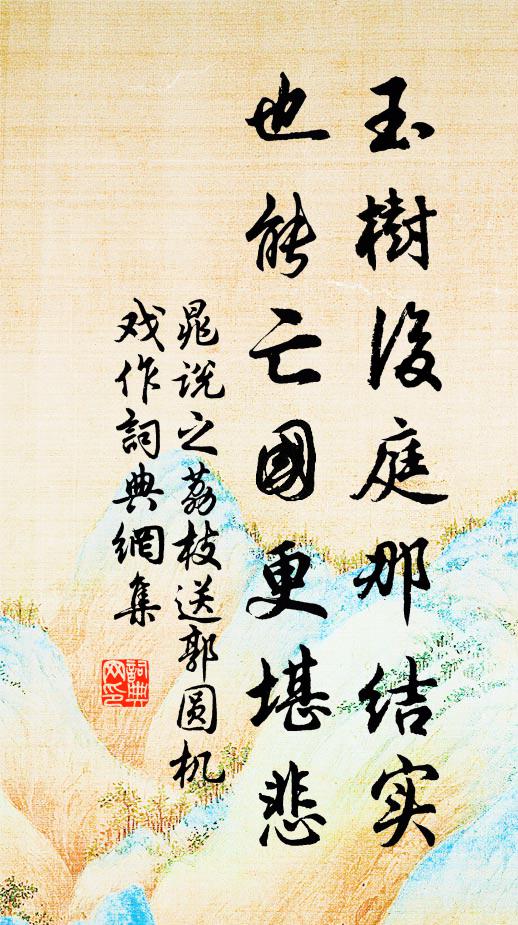 玉樹後庭那结实
也能亡國更堪悲
晁说之荔枝送郭圆机
戏作詞典網集
詞典網印